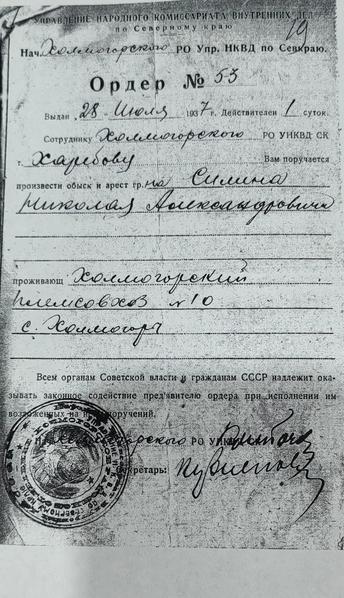 УПРАВЛЕНИЕ НАРОДНОГО КОМИССАРИАТА ВНУТРЕННИХ ДЕЛ
по Северному краю
19
Нач. Холмогорского РО Упр. НКВД по Севкраю.
Ордер № 53
Выдан 28 Июля 1937 г. Действителен 1 суток.
Сотруднику Холмогорского РО УНКВД СК
т. Вам поручается
произвести обыск и арест гр. на Силина
Николая Александровича
проживающ Холмогорский
племсовхоз № 10
с. Холмогоры
Всем органам Советской власти и гражданам СССР надлежит ока-
зывать законное содействие пред'явителю ордера при исполнении им
возложенных на поручений.
РО УНКВД
Секретарь: